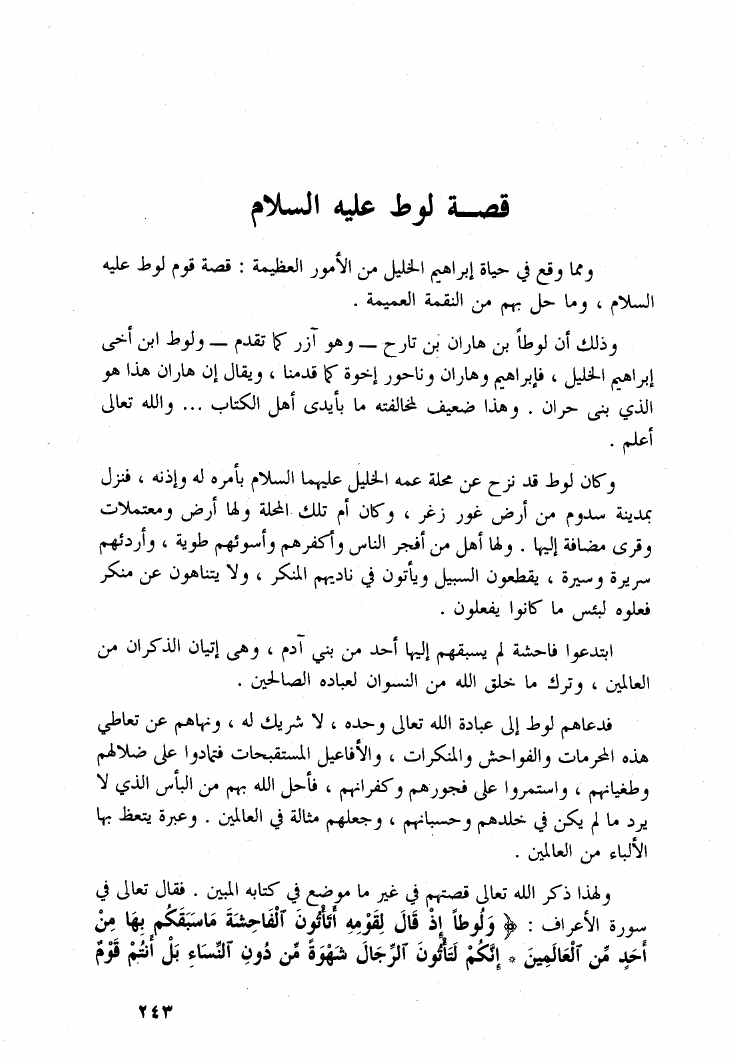 قصة لوط عليه السلام
ومما وقع في حياة إبراهيم الخليل من الأمور العظيمة : قصة قوم لوط عليه
السلام ، وما حل بهم من النقمة العميمة .
وذلك أن لوطاً بن هاران بن تارح — وهو آزر كما تقدم — ولوط ابن أخى
إبراهيم الخليل ، فإبراهيم وهاران وناحور إخوة كما قدمنا ، ويقال إن هاران هذا هو
الذي بنى حران . وهذا ضعيف لمخالفته ما بأيدى أهل الكتاب ... والله تعالى
أعلم .
وكان لوط قد نزح عن محلة عمه الخليل عليهما السلام بأمره له وإذنه ، فنزل
بمدينة سدوم من أرض غور زغر ، وكان أم تلك المحلة ولها أرض ومعتملات
وقرى مضافة إليها . ولها أهل من أفجر الناس وأكفرهم وأسوئهم طوية ، وأردئهم
سريرة وسيرة ، يقطعون السبيل ويأتون في ناديهم المنكر ، ولا يتناهون عن منكر
فعلوه لبئس ما كانوا يفعلون .
ابتدعوا فاحشة لم يسبقهم إليها أحد من بني آدم ، وهى إتيان الذكران من
العالمين ، وترك ما خلق الله من النسوان لعباده الصالحين .
فدعاهم لوط إلى عبادة الله تعالى وحده ، لا شريك له ، ونهاهم عن تعاطي
هذه المحرمات والفواحش والمنكرات ، والأفاعيل المستقبحات فتمادوا على ضلالهم
وطغيانهم ، واستمروا على فجورهم وكفرانهم ، فأحل الله بهم من البأس الذي لا
يرد ما لم يكن في خلدهم وحسبانهم ، وجعلهم مثالة في العالمين . وعبرة يتعظ بها
الألباء من العالمين .
ولهذا ذكر الله تعالى قصتهم في غير ما موضع في كتابه المبين . فقال تعالى في
سورة الأعراف : ﴿ وَلُوطاً إِذْ قَالَ لِقَوْمِهِ أَتَأْتُونَ ٱلْفَاحِشَةَ مَاسَبَقَكُم بِهَا مِنْ
أَحَدٍ مِّن ٱلْعَالَمِينَ * إِنَّكُمْ لَتَأْتُونَ ٱلرِّجَالَ شَهْوَةً مِّن دُونِ ٱلنِّسَاءِ بَلْ أَنتُمْ قَوْمٌ
٢٤٣